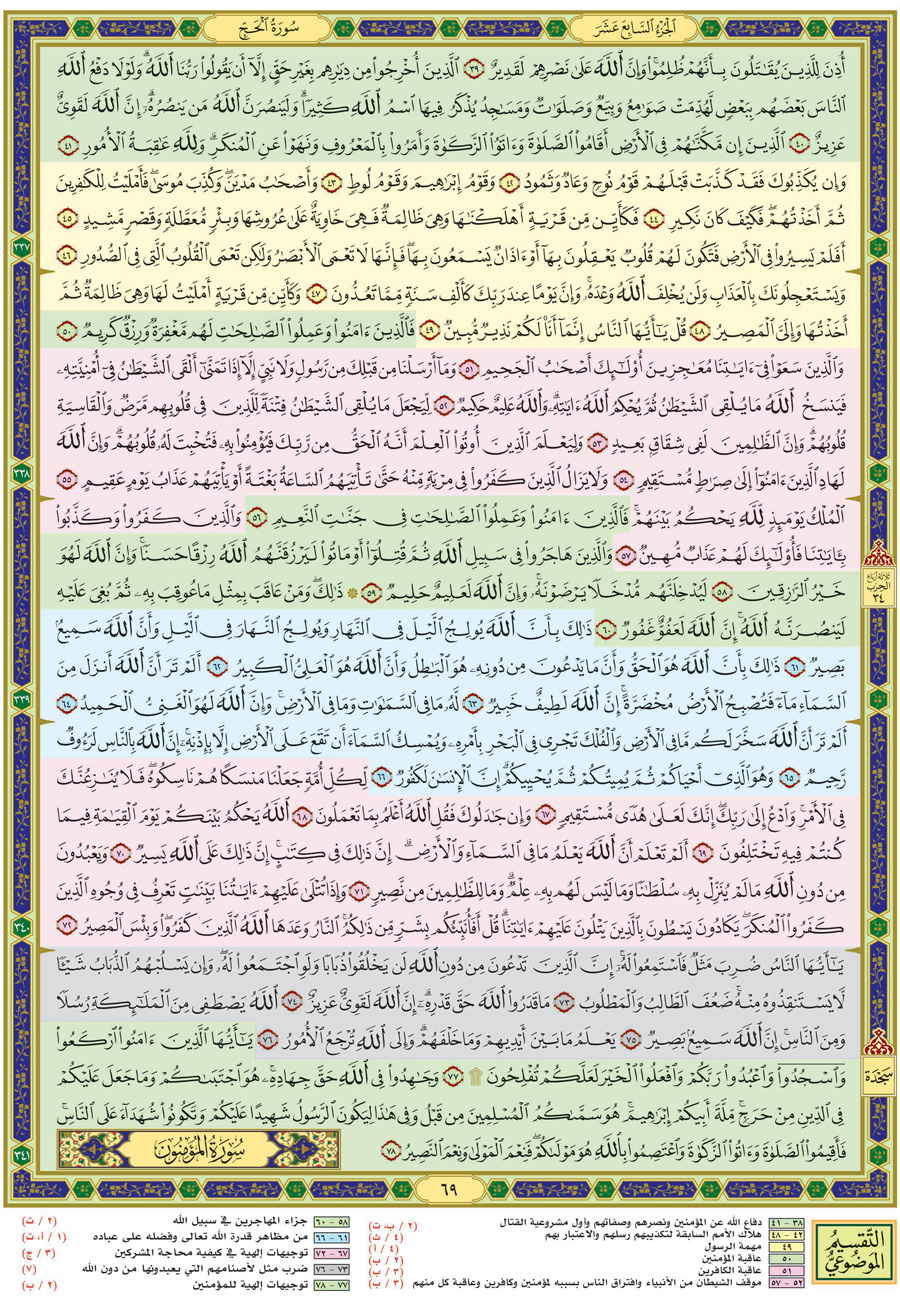 سُورَةُ الْحَجِّ
الْجُزْءُ السَّابِعَ عَشَرَ
أُذِنَ لِلَّذِينَ يُقَٰتَلُونَ بِأَنَّهُمْ ظُلِمُوا۟ ۚ وَإِنَّ ٱللَّهَ عَلَىٰ نَصْرِهِمْ لَقَدِيرٌ ٣٩ ٱلَّذِينَ أُخْرِجُوا۟ مِن دِيَٰرِهِم بِغَيْرِ حَقٍّ إِلَّآ أَن يَقُولُوا۟ رَبُّنَا ٱللَّهُ ۗ وَلَوْلَا دَفْعُ ٱللَّهِ
ٱلنَّاسَ بَعْضَهُم بِبَعْضٍ لَّهُدِّمَتْ صَوَٰمِعُ وَبِيَعٌ وَصَلَوَٰتٌ وَمَسَٰجِدُ يُذْكَرُ فِيهَا ٱسْمُ ٱللَّهِ كَثِيرًا ۗ وَلَيَنصُرَنَّ ٱللَّهُ مَن يَنصُرُهُۥٓ ۗ إِنَّ ٱللَّهَ لَقَوِىٌّ
عَزِيزٌ ٤٠ ٱلَّذِينَ إِن مَّكَّنَّٰهُمْ فِى ٱلْأَرْضِ أَقَامُوا۟ ٱلصَّلَوٰةَ وَءَاتَوُا۟ ٱلزَّكَوٰةَ وَأَمَرُوا۟ بِٱلْمَعْرُوفِ وَنَهَوْا۟ عَنِ ٱلْمُنكَرِ ۗ وَلِلَّهِ عَٰقِبَةُ ٱلْأُمُورِ ٤١
وَإِن يُكَذِّبُوكَ فَقَدْ كَذَّبَتْ قَبْلَهُمْ قَوْمُ نُوحٍ وَعَادٌ وَثَمُودُ ٤٢ وَقَوْمُ إِبْرَٰهِيمَ وَقَوْمُ لُوطٍ ٤٣ وَأَصْحَٰبُ مَدْيَنَ ۖ وَكُذِّبَ مُوسَىٰ فَأَمْلَيْتُ لِلْكَٰفِرِينَ
ثُمَّ أَخَذْتُهُمْ ۖ فَكَيْفَ كَانَ نَكِيرِ ٤٤ فَكَأَيِّن مِّن قَرْيَةٍ أَهْلَكْنَٰهَا وَهِىَ ظَالِمَةٌ فَهِىَ خَاوِيَةٌ عَلَىٰ عُرُوشِهَا وَبِئْرٍ مُّعَطَّلَةٍ وَقَصْرٍ مَّشِيدٍ ٤٥
أَفَلَمْ يَسِيرُوا۟ فِى ٱلْأَرْضِ فَتَكُونَ لَهُمْ قُلُوبٌ يَعْقِلُونَ بِهَآ أَوْ ءَاذَانٌ يَسْمَعُونَ بِهَا ۖ فَإِنَّهَا لَا تَعْمَى ٱلْأَبْصَٰرُ وَلَٰكِن تَعْمَى ٱلْقُلُوبُ ٱلَّتِى فِى ٱلصُّدُورِ ٤٦
وَيَسْتَعْجِلُونَكَ بِٱلْعَذَابِ وَلَن يُخْلِفَ ٱللَّهُ وَعْدَهُۥ ۚ وَإِنَّ يَوْمًا عِندَ رَبِّكَ كَأَلْفِ سَنَةٍ مِّمَّا تَعُدُّونَ ٤٧ وَكَأَيِّن مِّن قَرْيَةٍ أَمْلَيْتُ لَهَا وَهِىَ ظَالِمَةٌ ثُمَّ
أَخَذْتُهَا وَإِلَىَّ ٱلْمَصِيرُ ٤٨ قُلْ يَٰٓأَيُّهَا ٱلنَّاسُ إِنَّمَآ أَنَا۠ لَكُمْ نَذِيرٌ مُّبِينٌ ٤٩ فَٱلَّذِينَ ءَامَنُوا۟ وَعَمِلُوا۟ ٱلصَّٰلِحَٰتِ لَهُم مَّغْفِرَةٌ وَرِزْقٌ كَرِيمٌ ٥٠
وَٱلَّذِينَ سَعَوْا۟ فِىٓ ءَايَٰتِنَا مُعَٰجِزِينَ أُو۟لَٰٓئِكَ أَصْحَٰبُ ٱلْجَحِيمِ ٥١ وَمَآ أَرْسَلْنَا مِن قَبْلِكَ مِن رَّسُولٍ وَلَا نَبِىٍّ إِلَّآ إِذَا تَمَنَّىٰٓ أَلْقَى ٱلشَّيْطَٰنُ فِىٓ أُمْنِيَّتِهِۦ
فَيَنسَخُ ٱللَّهُ مَا يُلْقِى ٱلشَّيْطَٰنُ ثُمَّ يُحْكِمُ ٱللَّهُ ءَايَٰتِهِۦ ۗ وَٱللَّهُ عَلِيمٌ حَكِيمٌ ٥٢ لِّيَجْعَلَ مَا يُلْقِى ٱلشَّيْطَٰنُ فِتْنَةً لِّلَّذِينَ فِى قُلُوبِهِم مَّرَضٌ وَٱلْقَاسِيَةِ
قُلُوبُهُمْ ۗ وَإِنَّ ٱلظَّٰلِمِينَ لَفِى شِقَاقٍۭ بَعِيدٍ ٥٣ وَلِيَعْلَمَ ٱلَّذِينَ أُوتُوا۟ ٱلْعِلْمَ أَنَّهُ ٱلْحَقُّ مِن رَّبِّكَ فَيُؤْمِنُوا۟ بِهِۦ فَتُخْبِتَ لَهُۥ قُلُوبُهُمْ ۗ وَإِنَّ ٱللَّهَ
لَهَادِ ٱلَّذِينَ ءَامَنُوٓا۟ إِلَىٰ صِرَٰطٍ مُّسْتَقِيمٍ ٥٤ وَلَا يَزَالُ ٱلَّذِينَ كَفَرُوا۟ فِى مِرْيَةٍ مِّنْهُ حَتَّىٰ تَأْتِيَهُمُ ٱلسَّاعَةُ بَغْتَةً أَوْ يَأْتِيَهُمْ عَذَابُ يَوْمٍ عَقِيمٍ ٥٥
ٱلْمُلْكُ يَوْمَئِذٍ لِّلَّهِ يَحْكُمُ بَيْنَهُمْ ۚ فَٱلَّذِينَ ءَامَنُوا۟ وَعَمِلُوا۟ ٱلصَّٰلِحَٰتِ فِى جَنَّٰتِ ٱلنَّعِيمِ ٥٦ وَٱلَّذِينَ كَفَرُوا۟ وَكَذَّبُوا۟
بِـَٔايَٰتِنَا فَأُو۟لَٰٓئِكَ لَهُمْ عَذَابٌ مُّهِينٌ ٥٧ وَٱلَّذِينَ هَاجَرُوا۟ فِى سَبِيلِ ٱللَّهِ ثُمَّ قُتِلُوٓا۟ أَوْ مَاتُوا۟ لَيَرْزُقَنَّهُمُ ٱللَّهُ رِزْقًا حَسَنًا ۚ وَإِنَّ ٱللَّهَ لَهُوَ
خَيْرُ ٱلرَّٰزِقِينَ ٥٨ لَيُدْخِلَنَّهُم مُّدْخَلًا يَرْضَوْنَهُۥ ۗ وَإِنَّ ٱللَّهَ لَعَلِيمٌ حَلِيمٌ ٥٩ ۞ ذَٰلِكَ وَمَنْ عَاقَبَ بِمِثْلِ مَا عُوقِبَ بِهِۦ ثُمَّ بُغِىَ عَلَيْهِ
لَيَنصُرَنَّهُ ٱللَّهُ ۗ إِنَّ ٱللَّهَ لَعَفُوٌّ غَفُورٌ ٦٠ ذَٰلِكَ بِأَنَّ ٱللَّهَ يُولِجُ ٱلَّيْلَ فِى ٱلنَّهَارِ وَيُولِجُ ٱلنَّهَارَ فِى ٱلَّيْلِ وَأَنَّ ٱللَّهَ سَمِيعٌۢ
بَصِيرٌ ٦١ ذَٰلِكَ بِأَنَّ ٱللَّهَ هُوَ ٱلْحَقُّ وَأَنَّ مَا يَدْعُونَ مِن دُونِهِۦ هُوَ ٱلْبَٰطِلُ وَأَنَّ ٱللَّهَ هُوَ ٱلْعَلِىُّ ٱلْكَبِيرُ ٦٢ أَلَمْ تَرَ أَنَّ ٱللَّهَ أَنزَلَ مِنَ
ٱلسَّمَآءِ مَآءً فَتُصْبِحُ ٱلْأَرْضُ مُخْضَرَّةً ۗ إِنَّ ٱللَّهَ لَطِيفٌ خَبِيرٌ ٦٣ لَّهُۥ مَا فِى ٱلسَّمَٰوَٰتِ وَمَا فِى ٱلْأَرْضِ ۗ وَإِنَّ ٱللَّهَ لَهُوَ ٱلْغَنِىُّ ٱلْحَمِيدُ ٦٤
أَلَمْ تَرَ أَنَّ ٱللَّهَ سَخَّرَ لَكُم مَّا فِى ٱلْأَرْضِ وَٱلْفُلْكَ تَجْرِى فِى ٱلْبَحْرِ بِأَمْرِهِۦ وَيُمْسِكُ ٱلسَّمَآءَ أَن تَقَعَ عَلَى ٱلْأَرْضِ إِلَّا بِإِذْنِهِۦٓ ۗ إِنَّ ٱللَّهَ بِٱلنَّاسِ لَرَءُوفٌ
رَّحِيمٌ ٦٥ وَهُوَ ٱلَّذِىٓ أَحْيَاكُمْ ثُمَّ يُمِيتُكُمْ ثُمَّ يُحْيِيكُمْ ۗ إِنَّ ٱلْإِنسَٰنَ لَكَفُورٌ ٦٦ لِّكُلِّ أُمَّةٍ جَعَلْنَا مَنسَكًا هُمْ نَاسِكُوهُ ۖ فَلَا يُنَٰزِعُنَّكَ
فِى ٱلْأَمْرِ ۚ وَٱدْعُ إِلَىٰ رَبِّكَ ۖ إِنَّكَ لَعَلَىٰ هُدًى مُّسْتَقِيمٍ ٦٧ وَإِن جَٰدَلُوكَ فَقُلِ ٱللَّهُ أَعْلَمُ بِمَا تَعْمَلُونَ ٦٨ ٱللَّهُ يَحْكُمُ بَيْنَكُمْ يَوْمَ ٱلْقِيَٰمَةِ فِيمَا
كُنتُمْ فِيهِ تَخْتَلِفُونَ ٦٩ أَلَمْ تَعْلَمْ أَنَّ ٱللَّهَ يَعْلَمُ مَا فِى ٱلسَّمَآءِ وَٱلْأَرْضِ ۗ إِنَّ ذَٰلِكَ فِى كِتَٰبٍ ۚ إِنَّ ذَٰلِكَ عَلَى ٱللَّهِ يَسِيرٌ ٧٠ وَيَعْبُدُونَ
مِن دُونِ ٱللَّهِ مَا لَمْ يُنَزِّلْ بِهِۦ سُلْطَٰنًا وَمَا لَيْسَ لَهُم بِهِۦ عِلْمٌ ۗ وَمَا لِلظَّٰلِمِينَ مِن نَّصِيرٍ ٧١ وَإِذَا تُتْلَىٰ عَلَيْهِمْ ءَايَٰتُنَا بَيِّنَٰتٍ تَعْرِفُ فِى وُجُوهِ ٱلَّذِينَ
كَفَرُوا۟ ٱلْمُنكَرَ ۖ يَكَادُونَ يَسْطُونَ بِٱلَّذِينَ يَتْلُونَ عَلَيْهِمْ ءَايَٰتِنَا ۗ قُلْ أَفَأُنَبِّئُكُم بِشَرٍّ مِّن ذَٰلِكُمُ ۗ ٱلنَّارُ وَعَدَهَا ٱللَّهُ ٱلَّذِينَ كَفَرُوا۟ ۖ وَبِئْسَ ٱلْمَصِيرُ ٧٢
يَٰٓأَيُّهَا ٱلنَّاسُ ضُرِبَ مَثَلٌ فَٱسْتَمِعُوا۟ لَهُۥٓ ۚ إِنَّ ٱلَّذِينَ تَدْعُونَ مِن دُونِ ٱللَّهِ لَن يَخْلُقُوا۟ ذُبَابًا وَلَوِ ٱجْتَمَعُوا۟ لَهُۥ ۖ وَإِن يَسْلُبْهُمُ ٱلذُّبَابُ شَيْـًٔا
لَّا يَسْتَنقِذُوهُ مِنْهُ ۚ ضَعُفَ ٱلطَّالِبُ وَٱلْمَطْلُوبُ ٧٣ مَا قَدَرُوا۟ ٱللَّهَ حَقَّ قَدْرِهِۦٓ ۗ إِنَّ ٱللَّهَ لَقَوِىٌّ عَزِيزٌ ٧٤ ٱللَّهُ يَصْطَفِى مِنَ ٱلْمَلَٰٓئِكَةِ رُسُلًا
وَمِنَ ٱلنَّاسِ ۚ إِنَّ ٱللَّهَ سَمِيعٌۢ بَصِيرٌ ٧٥ يَعْلَمُ مَا بَيْنَ أَيْدِيهِمْ وَمَا خَلْفَهُمْ ۗ وَإِلَى ٱللَّهِ تُرْجَعُ ٱلْأُمُورُ ٧٦ يَٰٓأَيُّهَا ٱلَّذِينَ ءَامَنُوا۟ ٱرْكَعُوا۟
وَٱسْجُدُوا۟ وَٱعْبُدُوا۟ رَبَّكُمْ وَٱفْعَلُوا۟ ٱلْخَيْرَ لَعَلَّكُمْ تُفْلِحُونَ ۩ ٧٧ وَجَٰهِدُوا۟ فِى ٱللَّهِ حَقَّ جِهَادِهِۦ ۚ هُوَ ٱجْتَبَىٰكُمْ وَمَا جَعَلَ عَلَيْكُمْ
فِى ٱلدِّينِ مِنْ حَرَجٍ ۚ مِّلَّةَ أَبِيكُمْ إِبْرَٰهِيمَ ۚ هُوَ سَمَّىٰكُمُ ٱلْمُسْلِمِينَ مِن قَبْلُ وَفِى هَٰذَا لِيَكُونَ ٱلرَّسُولُ شَهِيدًا عَلَيْكُمْ وَتَكُونُوا۟ شُهَدَآءَ عَلَى ٱلنَّاسِ ۚ
فَأَقِيمُوا۟ ٱلصَّلَوٰةَ وَءَاتُوا۟ ٱلزَّكَوٰةَ وَٱعْتَصِمُوا۟ بِٱللَّهِ هُوَ مَوْلَىٰكُمْ ۖ فَنِعْمَ ٱلْمَوْلَىٰ وَنِعْمَ ٱلنَّصِيرُ ٧٨
سُورَةُ الْمُؤْمِنُونَ
٣٣٧
٣٣٨
٣٣٩
٣٤٠
٣٤١
ثلاثة أرباع
الحزب
٣٤
سَجْدَة
٦٩
التَّقْسِيمُ
المَوْضُوعِيُّ
٣٨ - ٤١ دفاع الله عن المؤمنين ونصرهم وصفاتهم وأول مشروعية القتال (٢ / ب، ت)
٤٢ - ٤٨ هلاك الأمم السابقة لتكذيبهم رسلهم والاعتبار بهم (٤ / ث)
٤٩ مهمة الرسول (٤ / أ)
٥٠ عاقبة المؤمنين (٢ / ب)
٥١ عاقبة الكافرين (٣ / ب)
٥٢ - ٥٧ موقف الشيطان من الأنبياء وافتراق الناس بسببه لمؤمنين وكافرين وعاقبة كل منهم (٣ / ب)
٥٨ - ٦٠ جزاء المهاجرين في سبيل الله (٢ / ت)
٦١ - ٦٦ من مظاهر قدرة الله تعالى وفضله على عباده (١ / أ، ت)
٦٧ - ٧٢ توجيهات إلهية في كيفية محاجة المشركين (٣ / ج)
٧٣ - ٧٦ ضرب مثل لأصنامهم التي يعبدونها من دون الله (٧)
٧٧ - ٧٨ توجيهات إلهية للمؤمنين (٢ / ب)